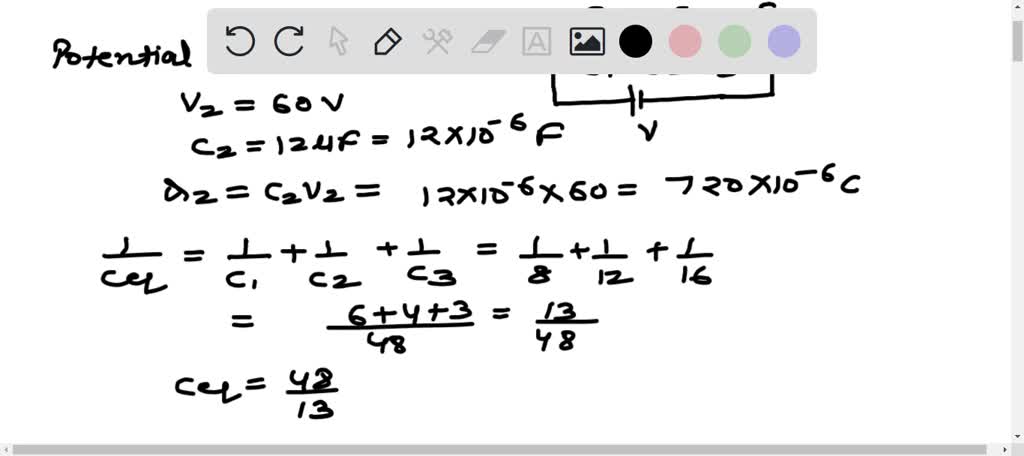 Potential
V₂ = 60V
C₂ = 12μF = 12×10⁻⁶ F
V
Q₂ = C₂V₂ = 12×10⁻⁶×60 = 720×10⁻⁶ C
1/Ceq = 1/C₁ + 1/C₂ + 1/C₃ = 1/8 + 1/12 + 1/16
= 6+4+3/48 = 13/48
Ceq = 48/13